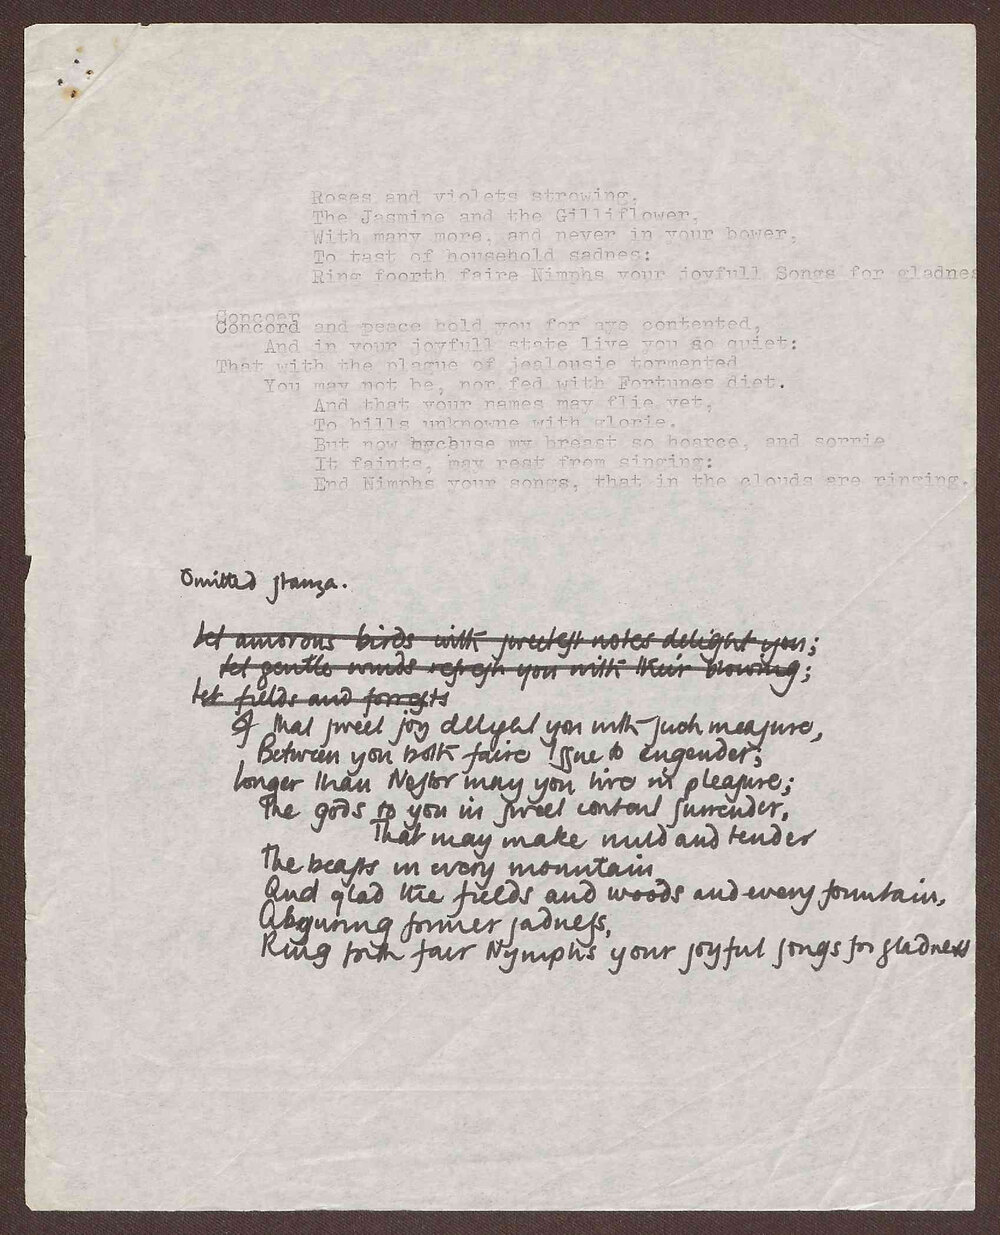 Roses and violets strowing,
The Jasmine and the Gilliflower,
With many more, and never in your bower,
To tast of household sadnes:
Ring foorth faire Nimphs your joyfull Songs for gladnes
Concoar
Concord and peace hold you for aye contented,
And in your joyfull state live you so quiet:
That with the plague of jealousie tormented
You may not be, nor fed with Fortunes diet.
And that your names may flie yet,
To hills unknowne with glorie.
But now bycbuse my breast so hoarce, and sorrie
It faints, may rest from singing:
End Nimphs your songs, that in the clouds are ringing.
Omitted stanza.
Let amorous birds with sweetest notes delight you;
Let gentle winds refresh you with their blowing;
Let fields and forrests
If that sweet joy delight you with such measure,
Between you both faire issue to engender;
Longer than Nestor may you live in pleasure;
The gods to you in sweet content surrender,
That may make mild and tender
The beasts in every mountain
And glad the fields and woods and every fountain,
Abguring former sadness,
Ring forth fair Nymphs your joyful songs for gladness